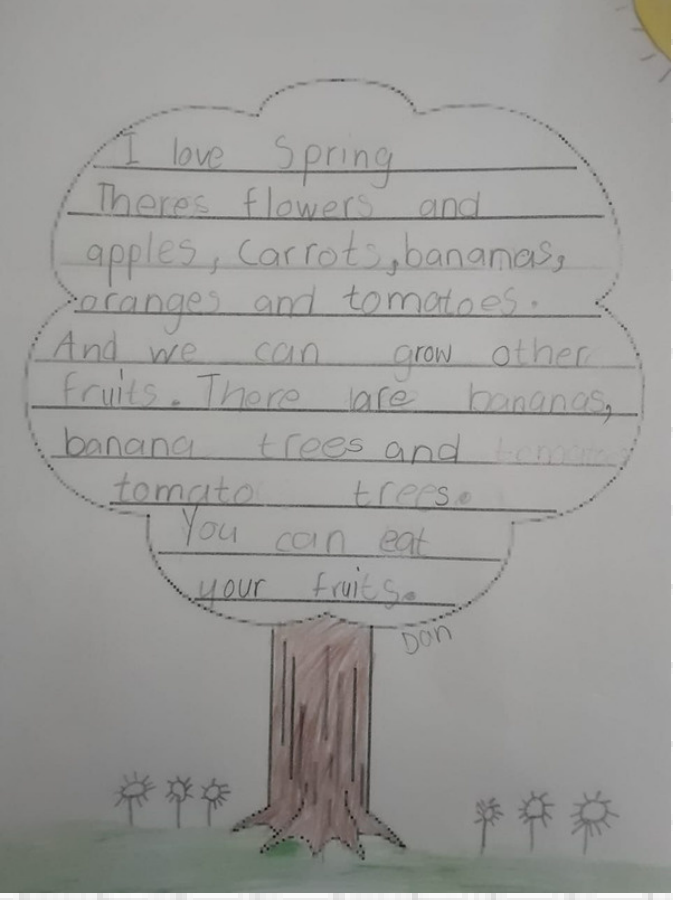 I love Spring
Theres flowers and
apples, carrots, bananas,
oranges and tomatoes.
And we can grow other
fruits. There are bananas,
banana trees and
tomato trees.
You can eat
your fruits.
Dan